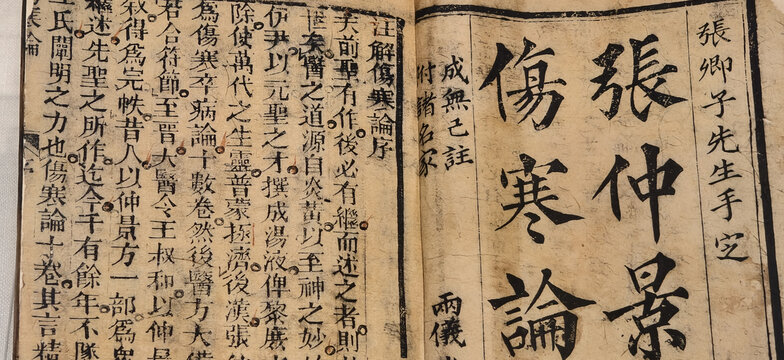 張卿子先生手定
張仲景
傷寒論
成無已註
附諸名家
兩儀
註解傷寒論序
夫前聖有作後必有繼而述之者則
醫之道源自炎黃以至神之妙
伊尹以元聖之才撰成湯液俾黎庶
除使萬代之生靈普蒙拯濟後漢張
為傷寒卒病論十數卷然後醫方大備
若合符節至晉太醫令王叔和以仲景
敘得為完帙昔人以仲景方一部為
繼述先聖之所作迄今千有餘年不墜
王氏闡明之力也傷寒論十卷其言精